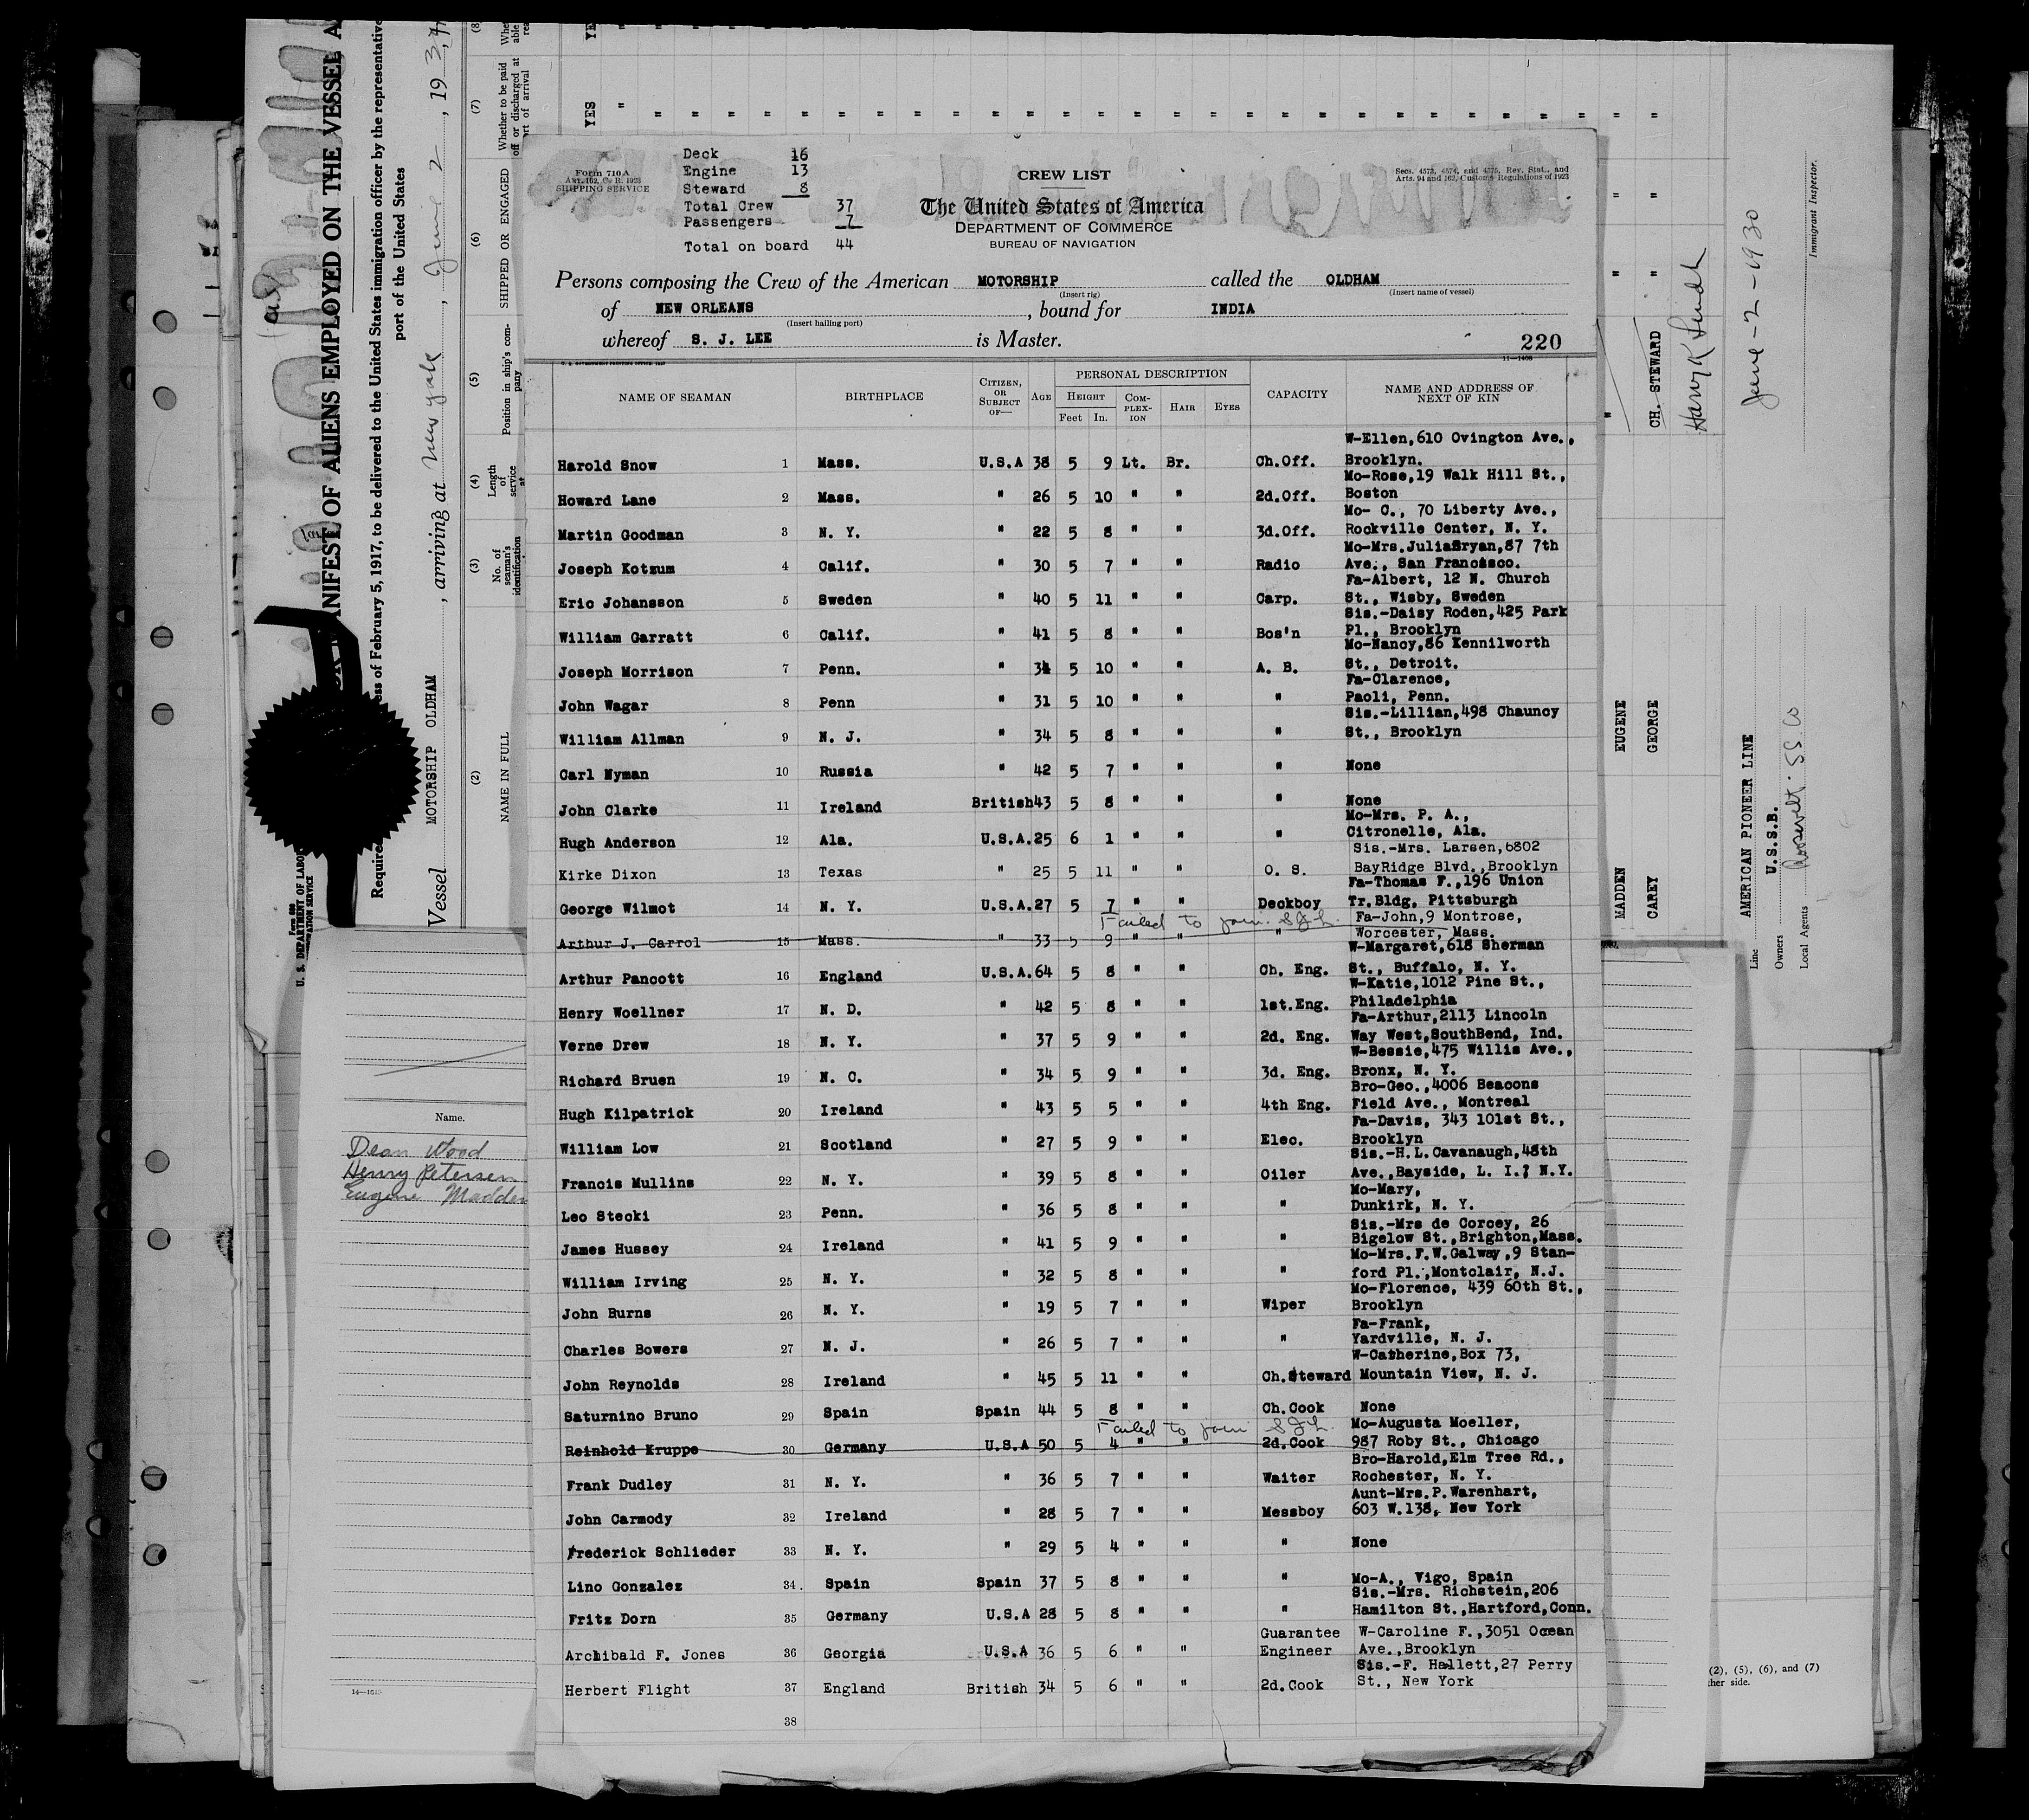 Form 710A
Art. 162, C. R. 1923
SHIPPING SERVICE
Deck 16
Engine 13
Steward 8
Total Crew 37
Passengers 7
Total on board 44
CREW LIST
The United States of America
DEPARTMENT OF COMMERCE
BUREAU OF NAVIGATION
Secs. 4573, 4574, and 4575, Rev. Stat., and
Arts. 94 and 162, Customs Regulations of 1923
Persons composing the Crew of the American MOTORSHIP called the OLDHAM
(Insert rig) (Insert name of vessel)
of NEW ORLEANS, bound for INDIA
(Insert hailing port)
whereof S. J. LEE is Master. 220
11—1408
NAME OF SEAMAN BIRTHPLACE CITIZEN, OR SUBJECT OF— AGE PERSONAL DESCRIPTION CAPACITY NAME AND ADDRESS OF NEXT OF KIN
HEIGHT COMPLEXION HAIR EYES
Feet In.
W-Ellen,610 Ovington Ave.,
Harold Snow 1 Mass. U.S.A 38 5 9 Lt. Br. Ch.Off. Brooklyn.
Mo-Rose,19 Walk Hill St.,
Howard Lane 2 Mass. " 26 5 10 " " 2d.Off. Boston
Mo- C., 70 Liberty Ave.,
Martin Goodman 3 N. Y. " 22 5 8 " " 3d.Off. Rockville Center, N. Y.
Mo-Mrs.JuliaBryan,87 7th
Joseph Kotzum 4 Calif. " 30 5 7 " " Radio Ave., San Francisco.
Fa-Albert, 12 N. Church
Eric Johansson 5 Sweden " 40 5 11 " " Carp. St., Wisby, Sweden
Sis.-Daisy Roden,425 Park
William Garratt 6 Calif. " 41 5 8 " " Bos'n Pl., Brooklyn
Mo-Nancy,86 Kennilworth
Joseph Morrison 7 Penn. " 34 5 10 " " A. B. St., Detroit.
Fa-Clarence,
John Wagar 8 Penn " 31 5 10 " " " Paoli, Penn.
Sis.-Lillian,498 Chauncy
William Allman 9 N. J. " 34 5 8 " " " St., Brooklyn
Carl Nyman 10 Russia " 42 5 7 " " " None
John Clarke 11 Ireland British 43 5 8 " " " None
Mo-Mrs. P. A.,
Hugh Anderson 12 Ala. U.S.A. 25 6 1 " " " Citronelle, Ala.
Sis.-Mrs. Larsen,6802
Kirke Dixon 13 Texas " 25 5 11 " " O. S. BayRidge Blvd.,Brooklyn
Fa-Thomas F.,196 Union
George Wilmot 14 N. Y. U.S.A. 27 5 7 " " Deckboy Tr.Bldg, Pittsburgh
Failed to join. SJL. Fa-John,9 Montrose,
Arthur J. Carrol 15 Mass. " 33 5 9 " " " Worcester, Mass.
W-Margaret,618 Sherman
Arthur Pancott 16 England U.S.A. 64 5 8 " " Ch. Eng. St., Buffalo, N. Y.
W-Katie,1012 Pine St.,
Henry Woellner 17 N. D. " 42 5 8 " " 1st.Eng. Philadelphia
Fa-Arthur,2113 Lincoln
Verne Drew 18 N. Y. " 37 5 9 " " 2d. Eng. Way West,SouthBend, Ind.
W-Bessie,475 Willis Ave.,
Richard Bruen 19 N. C. " 34 5 9 " " 3d. Eng. Bronx, N. Y.
Bro-Geo.,4006 Beacons
Hugh Kilpatrick 20 Ireland " 43 5 5 " " 4th Eng. Field Ave., Montreal
Fa-Davis, 343 101st St.,
William Low 21 Scotland " 27 5 9 " " Elec. Brooklyn
Sis.-H.L.Cavanaugh,48th
Francis Mullins 22 N. Y. " 39 5 8 " " Oiler Ave.,Bayside, L. I., N.Y.
Mo-Mary,
Leo Stecki 23 Penn. " 36 5 8 " " " Dunkirk, N. Y.
Sis.-Mrs de Corcey, 26
James Hussey 24 Ireland " 41 5 9 " " " Bigelow St.,Brighton,Mass.
Mo-Mrs.F.W.Galway,9 Stan-
William Irving 25 N. Y. " 32 5 8 " " " ford Pl.,Montclair, N.J.
Mo-Florence, 439 60th St.,
John Burns 26 N. Y. " 19 5 7 " " Wiper Brooklyn
Fa-Frank,
Charles Bowers 27 N. J. " 26 5 7 " " " Yardville, N. J.
W-Catherine,Box 73,
John Reynolds 28 Ireland " 45 5 11 " " Ch.Steward Mountain View, N. J.
Saturnino Bruno 29 Spain Spain 44 5 8 " " Ch.Cook None
Failed to join SJL. Mo-Augusta Moeller,
Reinhold Kruppe 30 Germany U.S.A 50 5 4 " " 2d.Cook 987 Roby St., Chicago
Bro-Harold,Elm Tree Rd.,
Frank Dudley 31 N. Y. " 36 5 7 " " Waiter Rochester, N. Y.
Aunt-Mrs.P.Warenhart,
John Carmody 32 Ireland " 28 5 7 " " Messboy 603 W.138, New York
Frederick Schlieder 33 N. Y. " 29 5 4 " " " None
Lino Gonzalez 34 Spain Spain 37 5 8 " " " Mo-A., Vigo, Spain
Sis.-Mrs. Richstein,206
Fritz Dorn 35 Germany U.S.A 28 5 8 " " " Hamilton St.,Hartford,Conn.
Guarantee W-Caroline F.,3051 Ocean
Archibald F. Jones 36 Georgia U.S.A 36 5 6 " " Engineer Ave.,Brooklyn
Sis.-F. Hallett,27 Perry
Herbert Flight 37 England British 34 5 6 " " 2d.Cook St., New York
38
Name.
Dean Wood
Henry Petersen
Eugene Madden
14—1643
ANIFEST OF ALIENS EMPLOYED ON THE VESSEL A
Required
ess of February 5, 1917, to be delivered to the United States immigration officer by the representative
port of the United States
Vessel MOTORSHIP OLDHAM, arriving at New York, June 2, 193
(2) NAME IN FULL
(3) No. of seaman's identification
(4) Length of service at
(5) Position in ship's company
(6) SHIPPED OR ENGAGED
(7) Whether to be paid off or discharged at port of arrival
(8)
YES
U. S. DEPARTMENT OF LABOR
MADDEN EUGENE "
CAREY GEORGE CH. STEWARD " "
June-2-1930
Immigrant Inspector.
Line AMERICAN PIONEER LINE
Owners U.S.S.B.
Local Agents Roosevelt SS. Co
(2), (5), (6), and (7)
ther side.